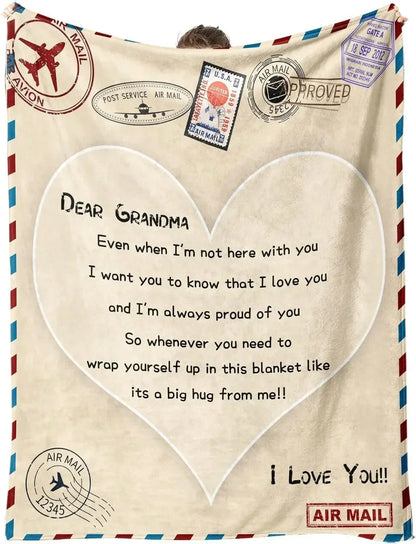 AVION
POST SERVICE AIR MAIL
U.S.A.
1859-1959
AIR MAIL
AIR MAIL
APPROVED
5462
GATE A
18 SEP 2012
DEAR GRANDMA
Even when I'm not here with you
I want you to know that I love you
and I'm always proud of you
So whenever you need to
wrap yourself up in this blanket like
its a big hug from me!!
I LOVE YOU!!
AIR MAIL
12345
AIR MAIL